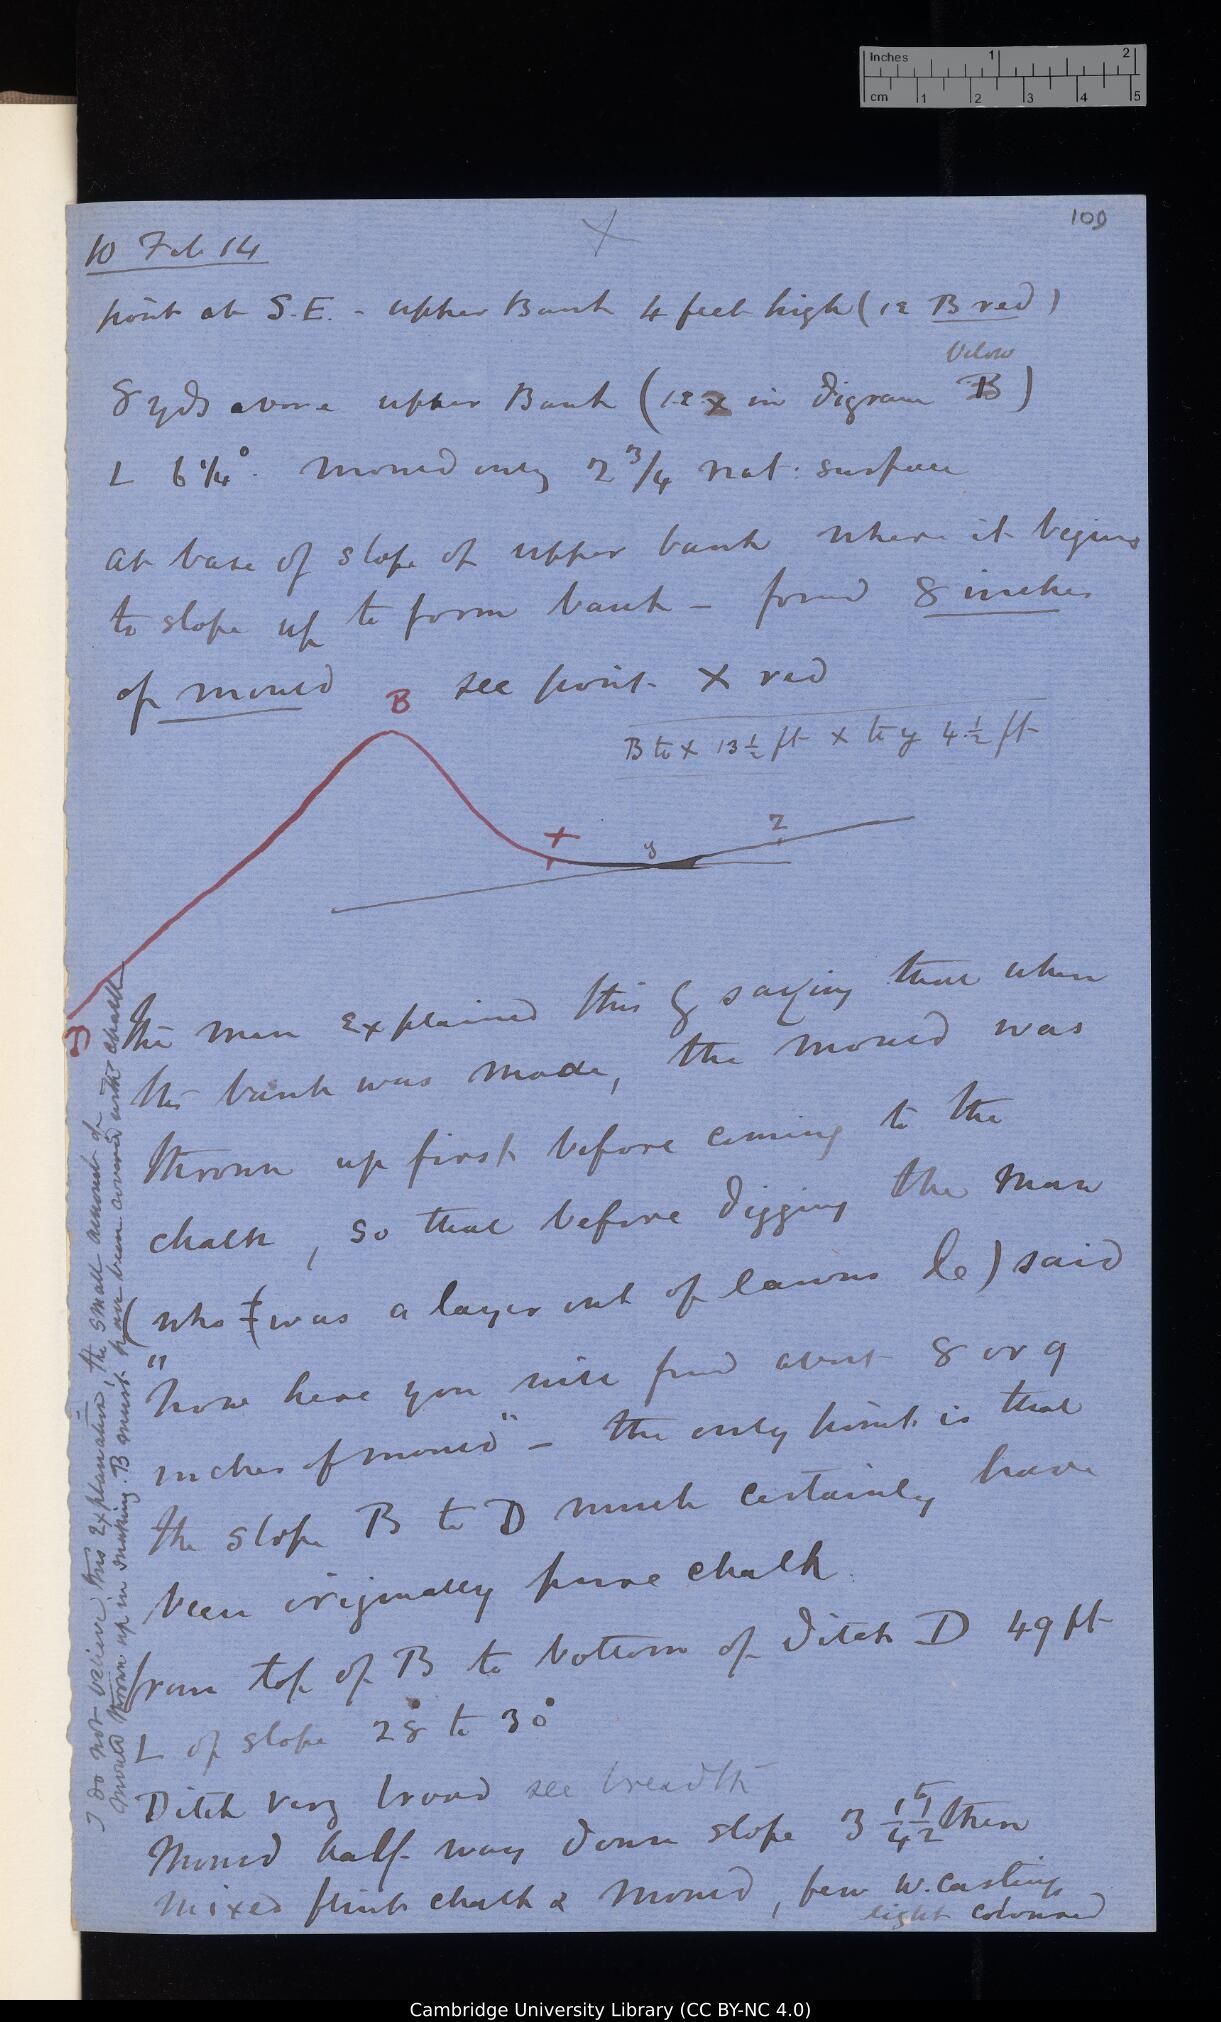 Inches 1 2
cm 1 2 3 4 5
109
10 Feb 14
point at S.E. - upper Bank 4 feet high (ie B red)
below
8 yds above upper Bank (ie x in digram B)
L 6 1/4°. mould only 2 3/4 nat: surface
at base of slope of upper bank where it begins
to slope up to form bank — found 8 inches
of mould see point X red
B
B to x 13 1/2 ft x to y 4 1/2 ft
X y Z
D
the man explained this by saying that when
the bank was made, the mould was
thrown up first before coming to the
chalk, so that before digging the man
(who (was a layer out of lawns &c) said
"now here you will find about 8 or 9
inches of mould" — the only point is that
the slope B to D must certainly have
been originally pure chalk.
from top of B to bottom of Ditch D 49 ft
L of slope 28° to 30°
Ditch very broad see breadth
Mould half way down slope 3 1/4 to 1/2 then
mixed flints chalk & mould, few w. castings
light coloured
I do not believe this explanation, the small amount of
mould thrown up in making B must have been covered with chalk
Cambridge University Library (CC BY-NC 4.0)